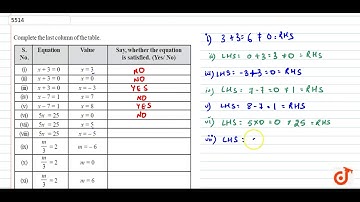 5514
Complete the last column of the table.
S. No. Equation Value Say, whether the equation is satisfied. (Yes/ No)
(i) x + 3 = 0 x = 3 NO
(ii) x + 3 = 0 x = 0 NO
(iii) x + 3 = 0 x = − 3 YES
(iv) x − 7 = 1 x = 7 NO
(v) x − 7 = 1 x = 8 YES
(vi) 5x = 25 x = 0 NO
(vii) 5x = 25 x = 5
(viii) 5x = 25 x = −5
(ix) m/3 = 2 m = − 6
(x) m/3 = 2 m = 0
(xi) m/3 = 2 m = 6
i) 3 + 3 = 6 ≠ 0 = RHS
ii) LHS : 0 + 3 = 3 ≠ 0 = RHS
iii) LHS = -3+3 = 0 = RHS
iv) LHS : 7-7 = 0 ≠ 1 = RHS
v) LHS = 8-7 = 1 = RHS
vi) LHS = 5×0 = 0 ≠ 25 = RHS
vii) LHS =
doubtnut